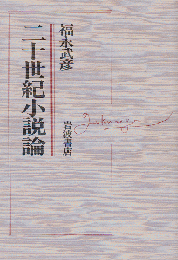 福永武彦
二十世紀小説論
岩波書店